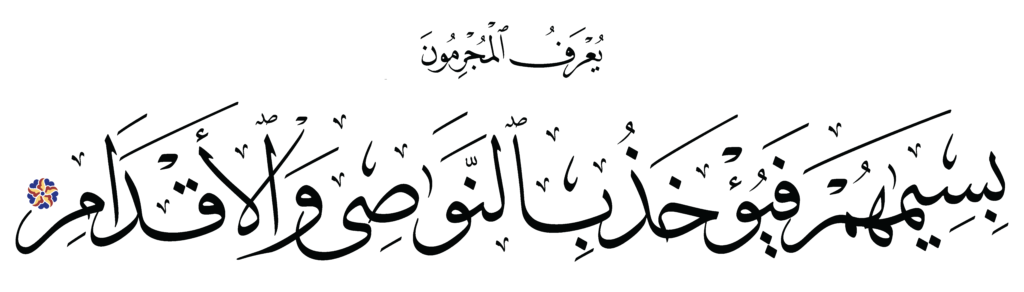 يُعْرَفُ ٱلْمُجْرِمُونَ
بِسِيمَٰهُمْ فَيُؤْخَذُ بِٱلنَّوَٰصِى وَٱلْأَقْدَامِ